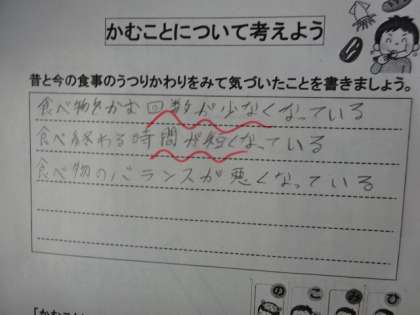 かむことについて考えよう
昔と今の食事のうつりかわりをみて気づいたことを書きましょう。
食べ物をかむ回数が少なくなっている
食べ終わる時間が短くなっている
食べ物のバランスが悪くなっている
ひみこの